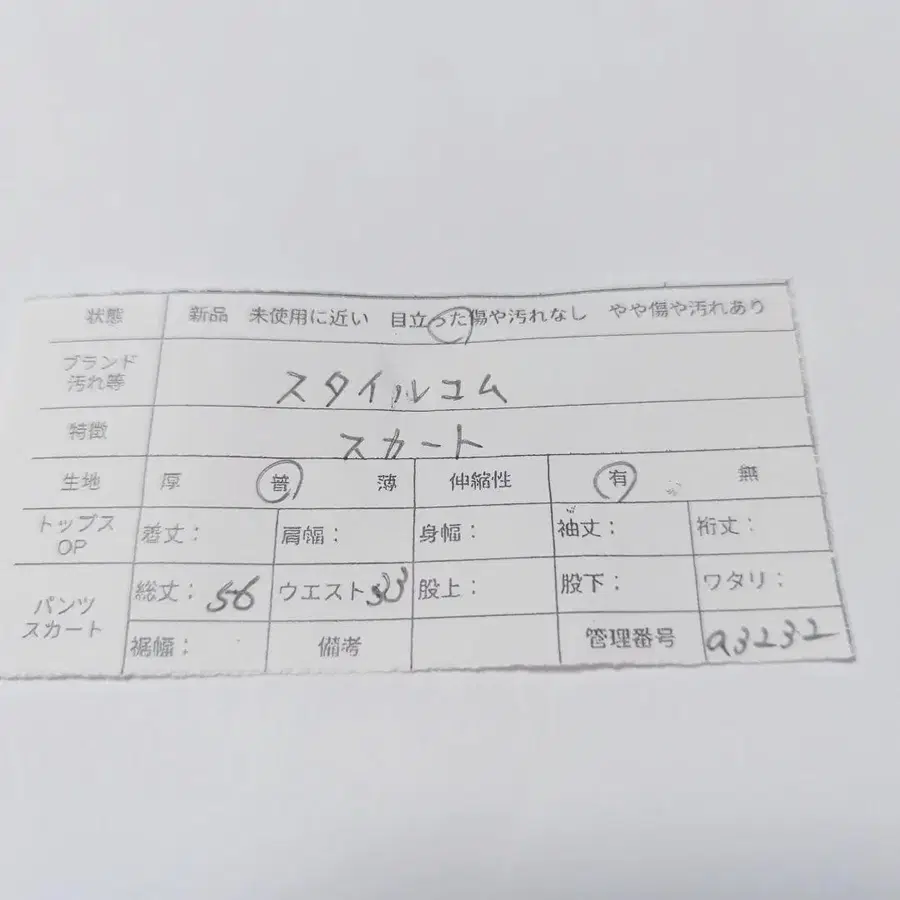 状態 新品 未使用に近い 目立った傷や汚れなし やや傷や汚れあり
ブランド
汚れ等 スタイルコム
特徴 スカート
生地 厚 普 薄 伸縮性 有 無
トップス
OP 着丈： 肩幅： 身幅： 袖丈： 裄丈：
パンツ
スカート 総丈：56 ウエスト33 股上： 股下： ワタリ：
裾幅： 備考 管理番号 a3232